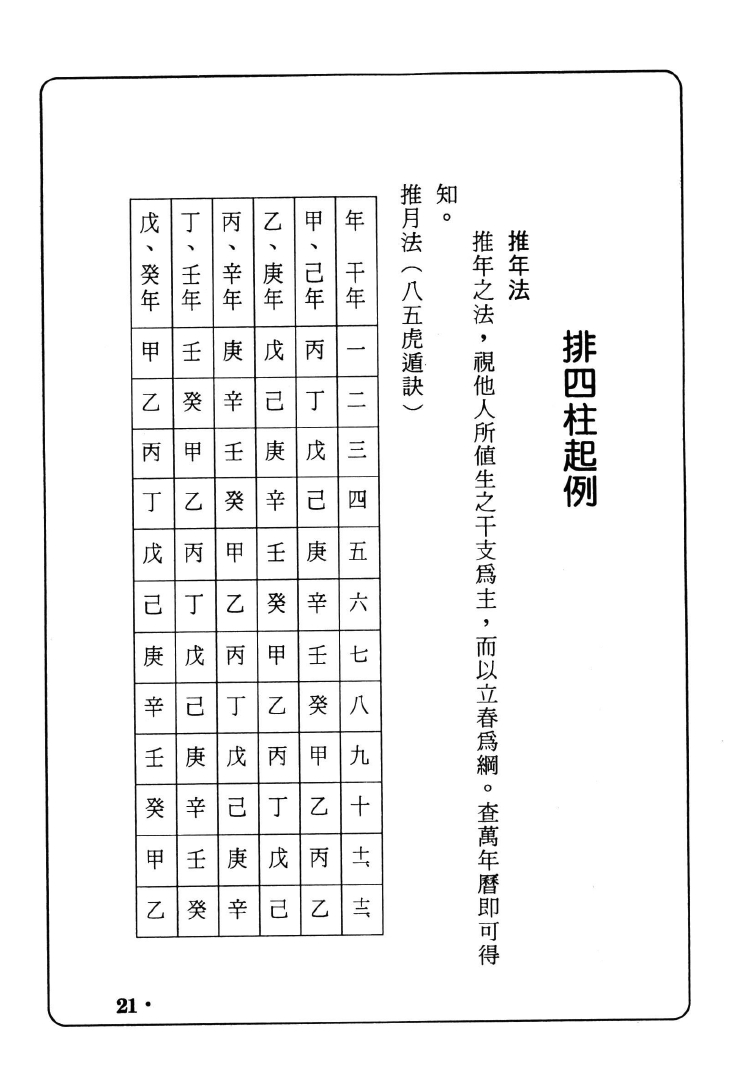 排四柱起例
推年法
推年之法，視他人所値生之干支爲主，而以立春爲綱。查萬年曆即可得
知。
推月法（八五虎遁訣）
年　干年 一 二 三 四 五 六 七 八 九 十 十一、 十二、
甲、己年 丙 丁 戊 己 庚 辛 壬 癸 甲 乙 丙 乙
乙、庚年 戊 己 庚 辛 壬 癸 甲 乙 丙 丁 戊 己
丙、辛年 庚 辛 壬 癸 甲 乙 丙 丁 戊 己 庚 辛
丁、壬年 壬 癸 甲 乙 丙 丁 戊 己 庚 辛 壬 癸
戊、癸年 甲 乙 丙 丁 戊 己 庚 辛 壬 癸 甲 乙
21·